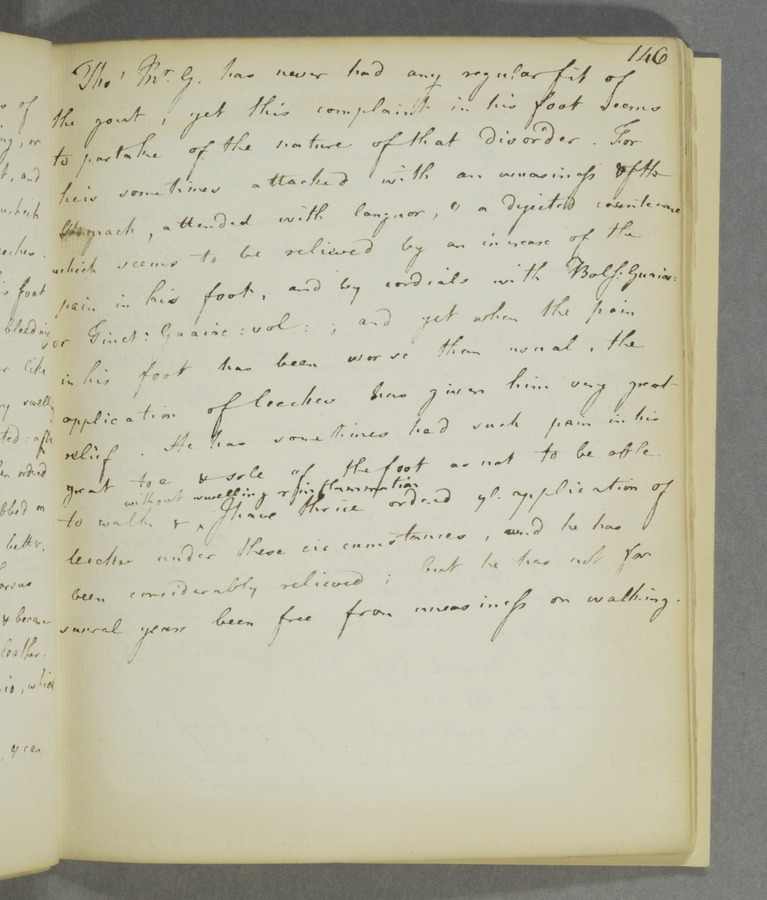 146
Tho' Mr. G. has never had any regular fit of
the gout, yet this complaint in his foot seems
to partake of the nature of that disorder. For
he is sometimes attacked with an uneasiness of the
Stomach, attended with languor, & a dejected countenance
which seems to be relieved by an increase of the
pain in his foot, and by cordials with Bals: Guriac:
or Tinct: Guaiac: vol: ; and yet when the pain
in his foot has been worse than usual, the
application of leeches has given him very great
relief. He has sometimes had such pain in his
great toe & sole of the foot as not to be able
without swelling or inflammation
to walk & ^ I have thrice ordered ye. application of
leeches under these circumstances, and he has
been considerably relieved; but he has not for
several years been free from uneasiness on walking.
s of
ng, or
t, and
which
leeches.
is foot
bleeding
or like
ry swelle
ted: afte
bbed on
better,
& becam
leather.
io, which
, & can